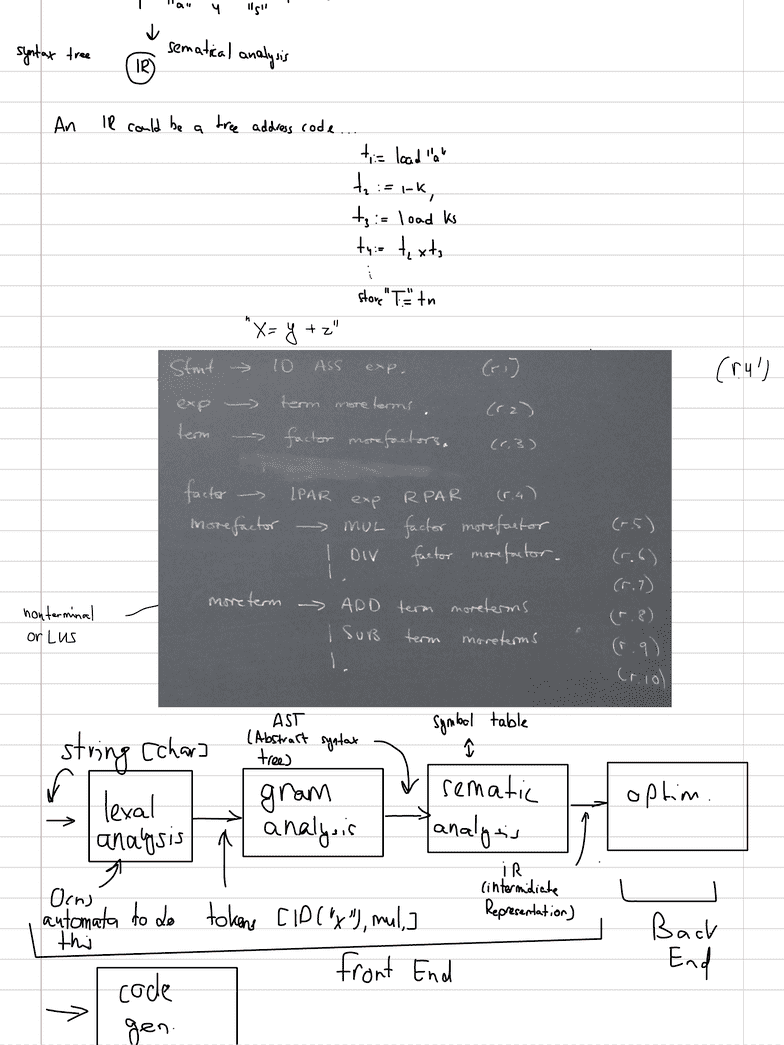 "a" 4 "s"
sematical analysis
syntax tree IR
An IR could be a tree address code...
t₁:= load "a"
t₂ := 1-k,
t₃ := load ks
t₄:= t₂ x t₃
store "T:=" tn
"X= y + z"
Stmt → ID ASS exp. (r.1) (r.4')
exp → term moreterms. (r.2)
term → factor morefactors. (r.3)
factor → LPAR exp RPAR (r.4)
Morefactor → MUL factor morefactor (r.5)
| DIV factor morefactor. (r.6)
| . (r.7)
moreterm → ADD term moreterms (r.8)
| SUB term moreterms (r.9)
| . (r.10)
nonterminal
or LHS
AST
(Abstract syntax
tree)
symbol table
string [char]
lexal
analysis
gram
analysis
sematic
analysis
optim.
IR
(intermidiate
Representation)
O(n)
automata to do
this
tokens [ID("x"), mul,]
Front End
Back
End
code
gen.